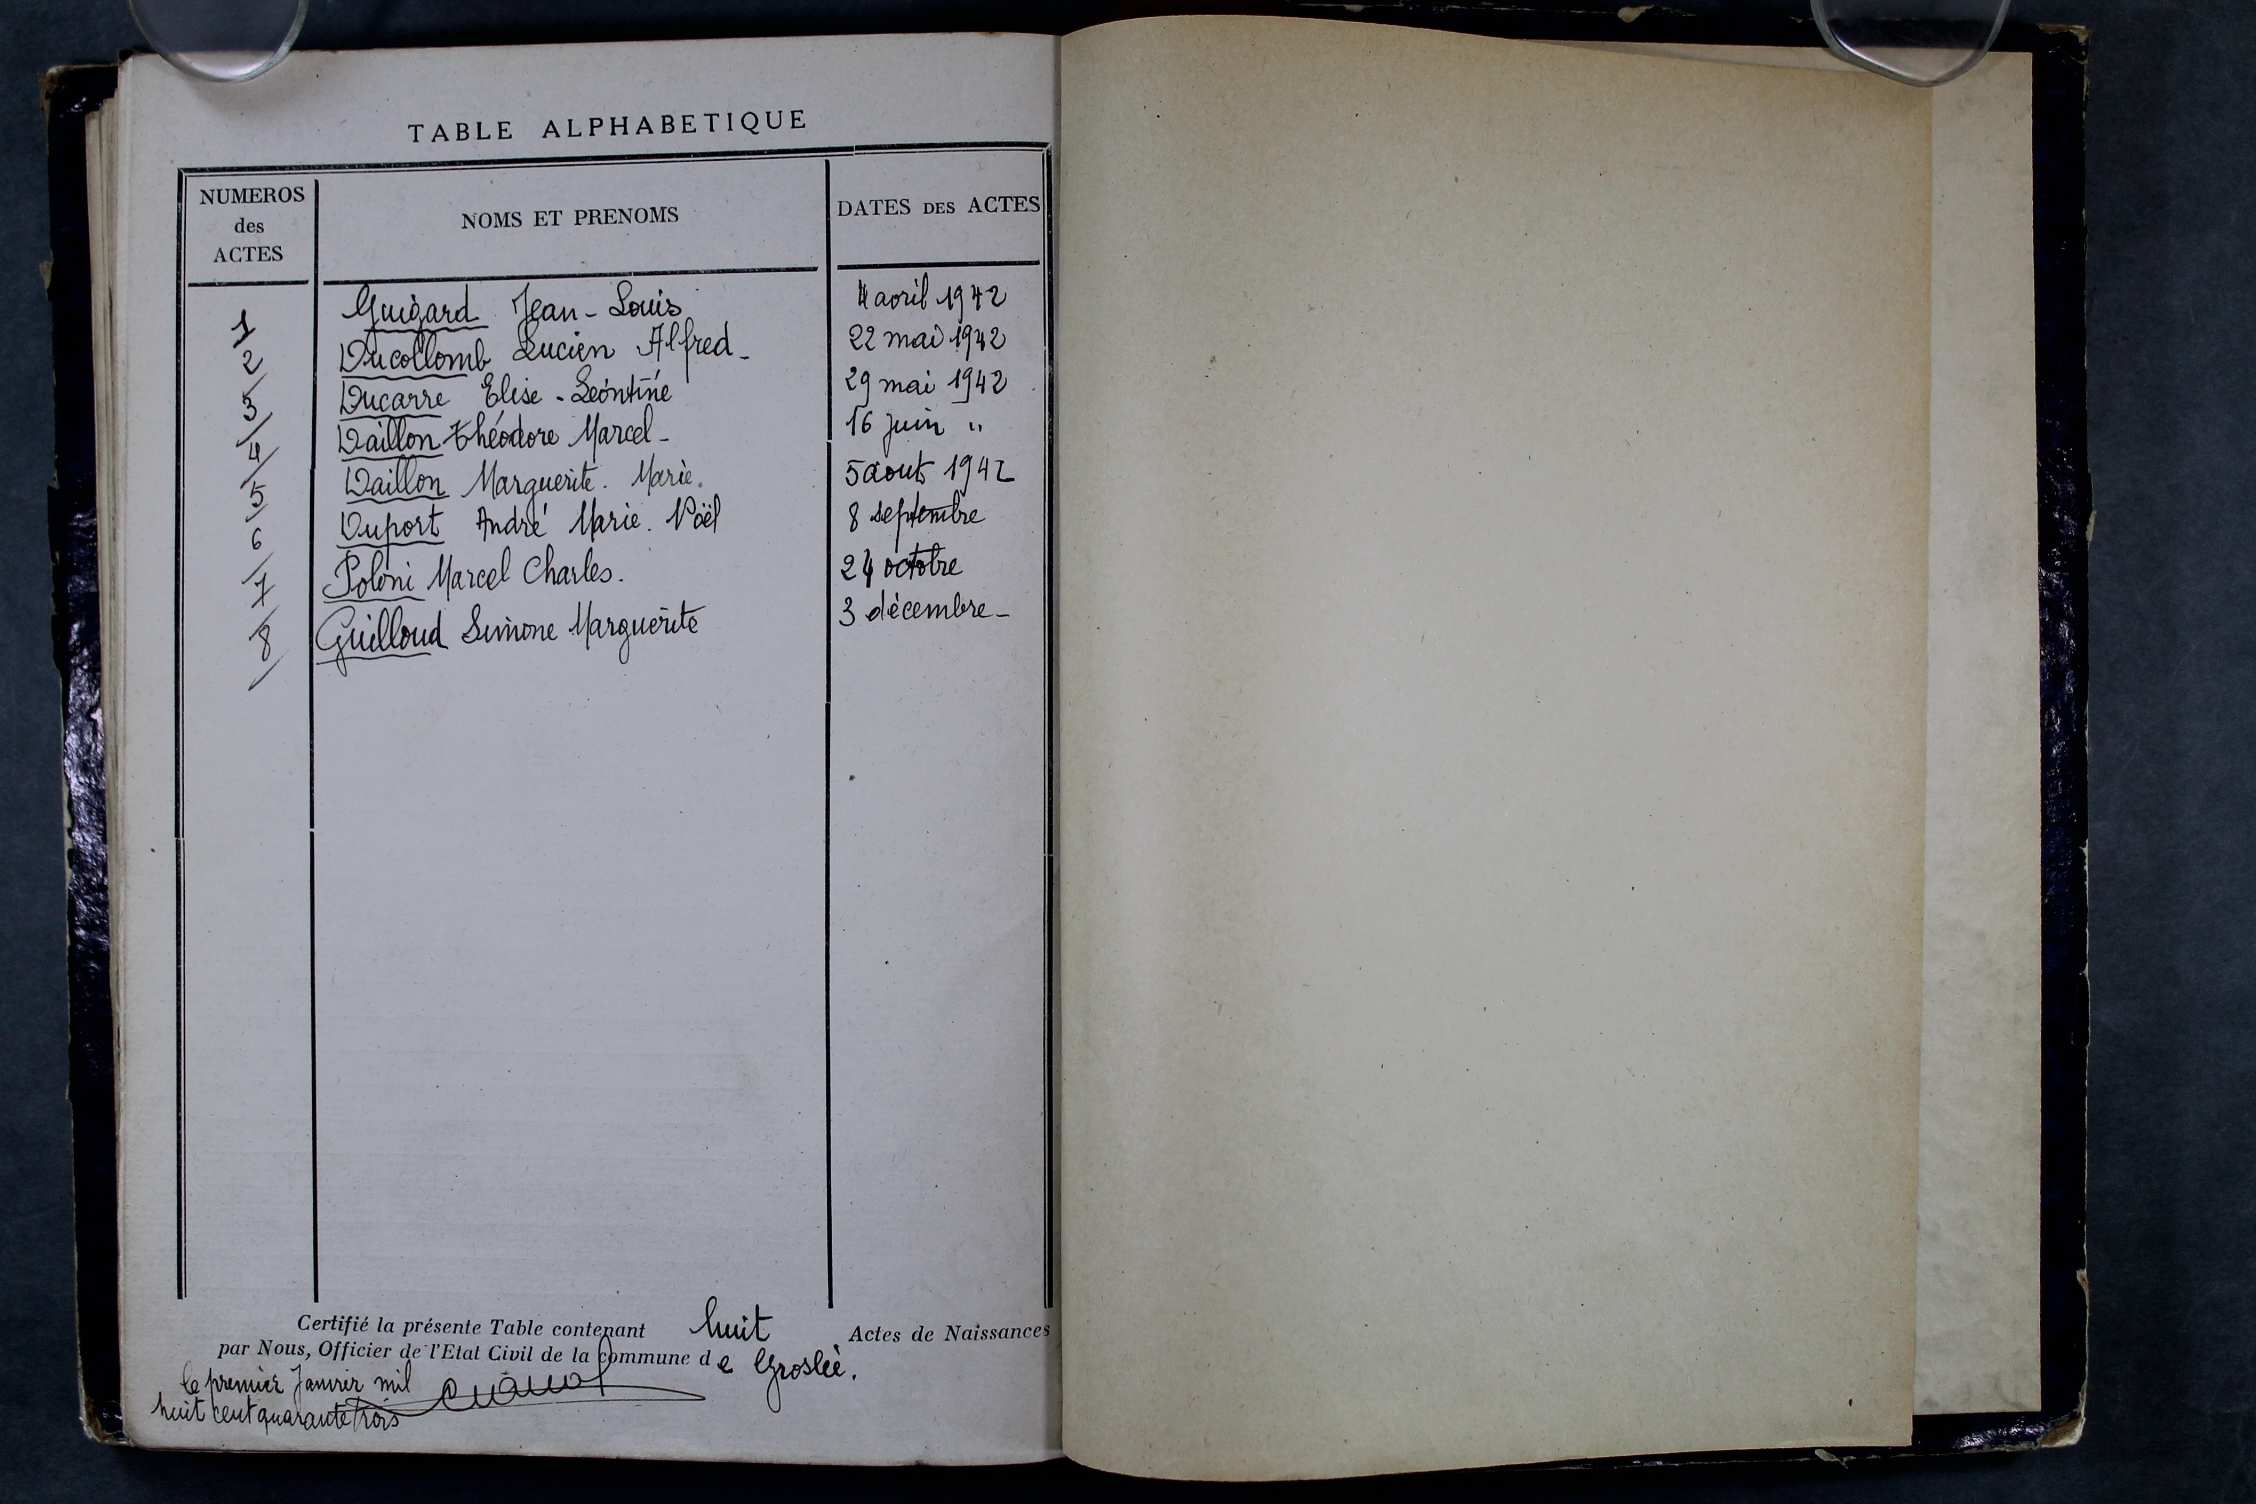 TABLE ALPHABETIQUE
NUMEROS des ACTES NOMS ET PRENOMS DATES DES ACTES
1 Guigard Jean - Louis 4 avril 1942
2 Ducollomb Lucien Alfred - 22 mai 1942
3 Ducarre Elise - Léontine 29 mai 1942
4 Daillon Théodore Marcel - 16 Juin "
5 Daillon Marguerite. Marie. 5 aout 1942
6 Duport André Marie. Noël 8 septembre
7 Poloni Marcel Charles. 24 octobre
8 Guilloud Simone Marguerite 3 décembre -
Certifié la présente Table contenant huit Actes de Naissances
par Nous, Officier de l'Etat Civil de la commune de Groslée.
le premier Janvier mil
huit cent quarante trois